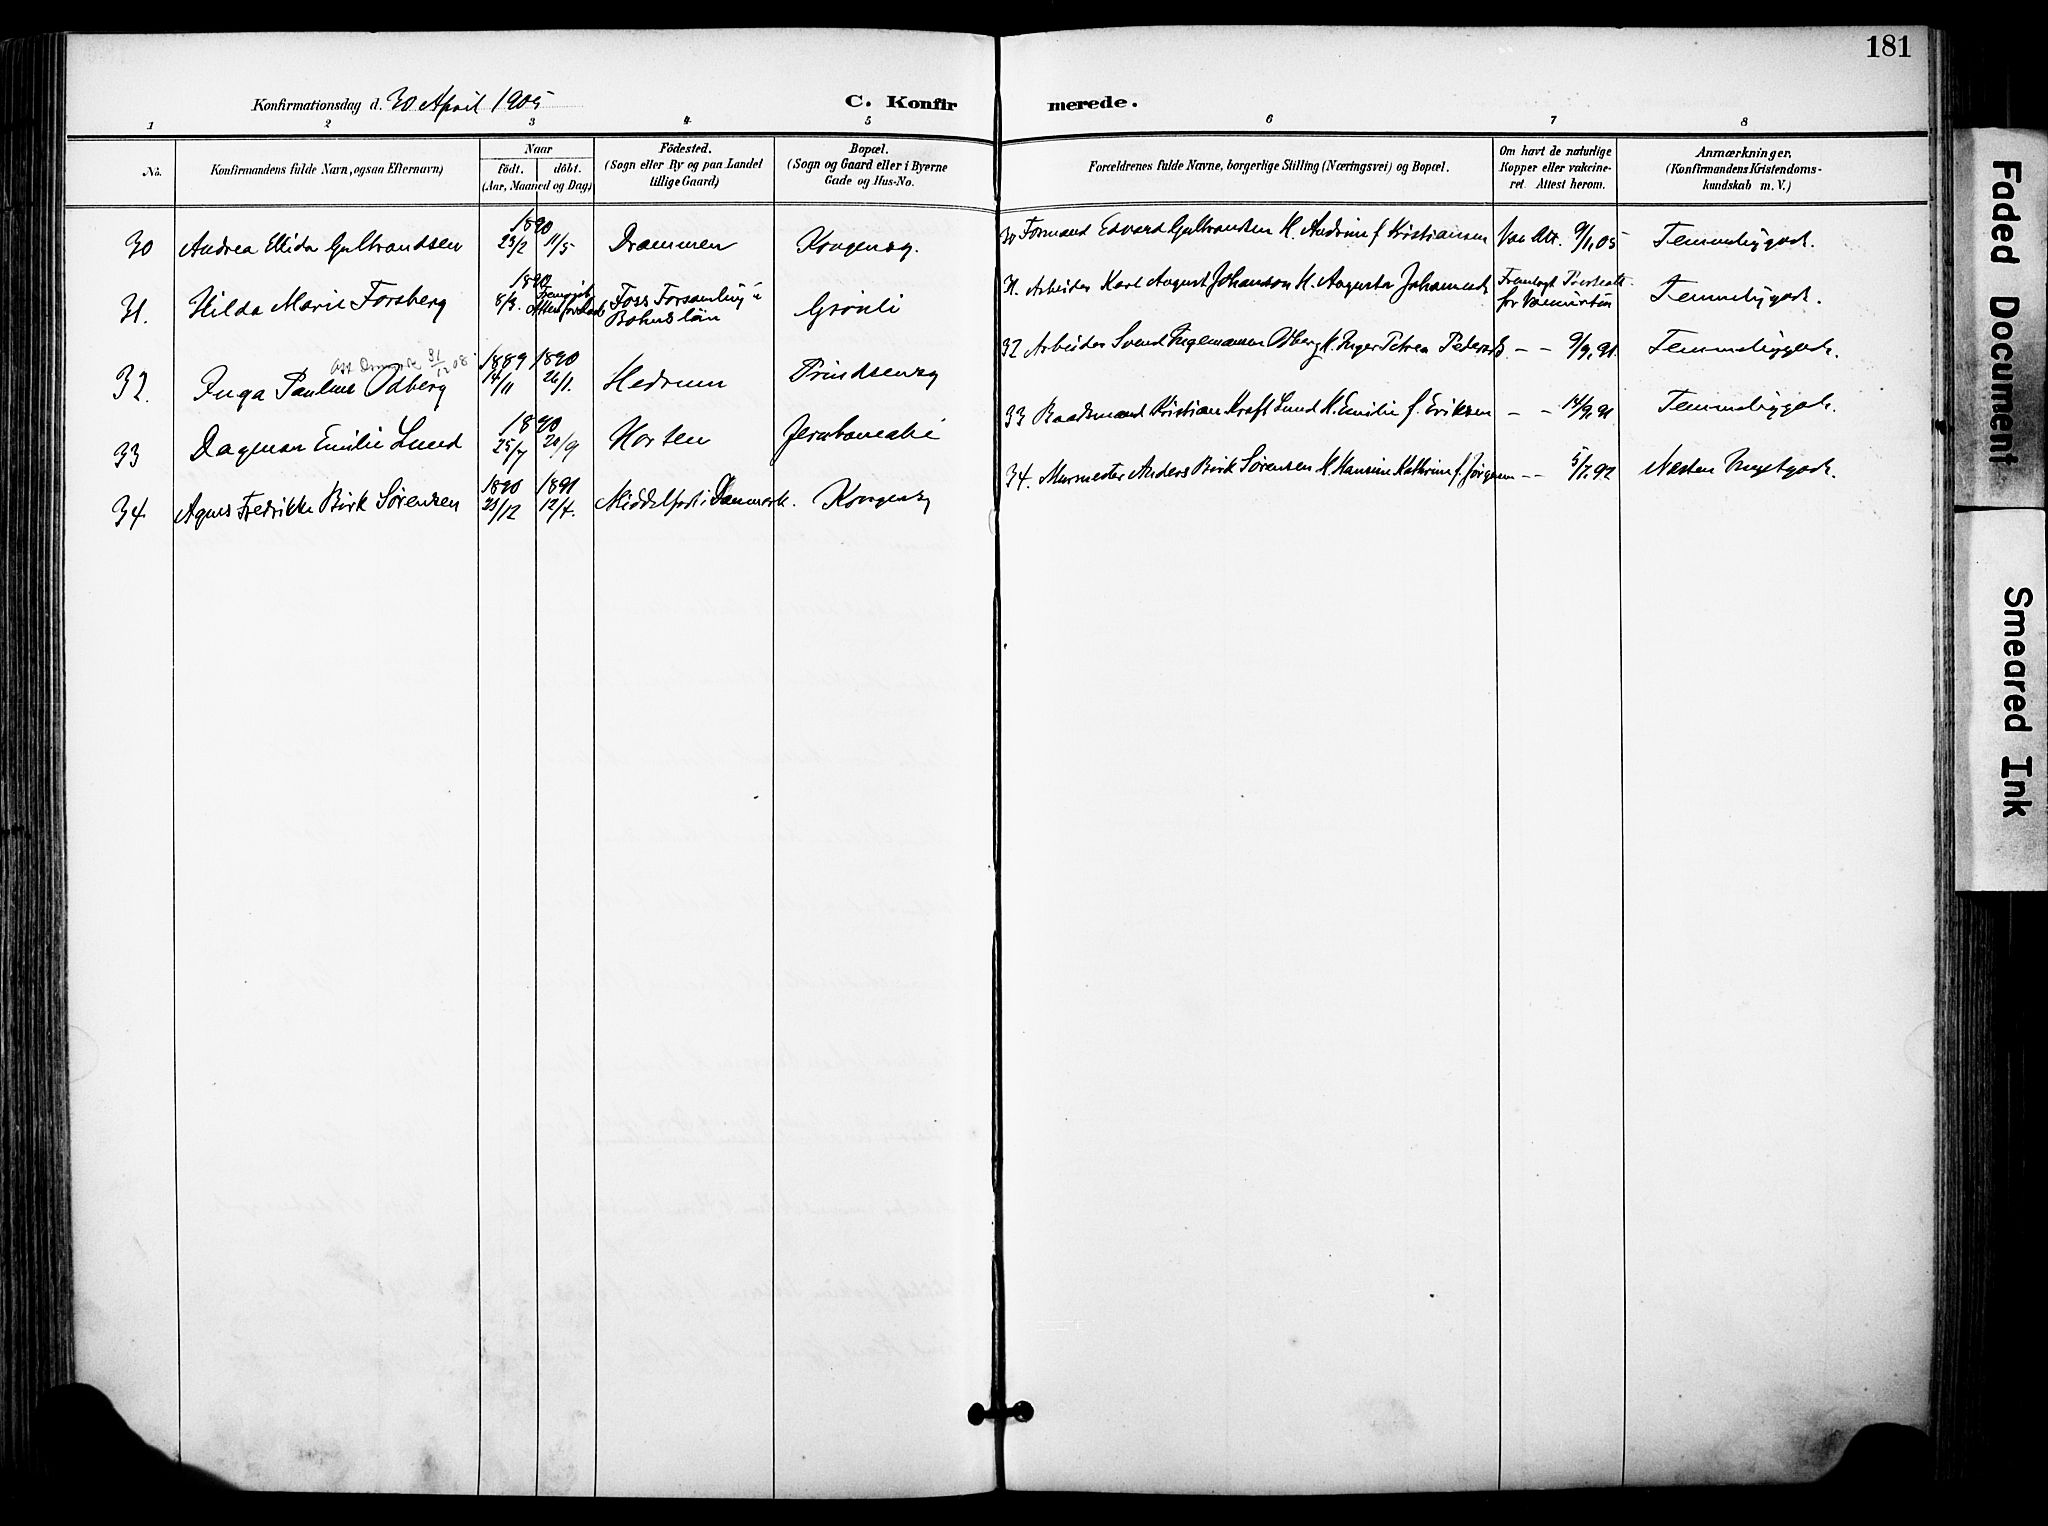 181
Konfirmationsdag d. 30 April 1905
C. Konfir merede.
1 2 3 4 5 6 7 8
No.
Konfirmandens fulde Navn, ogsaa Efternavn)
Naar
födt. döbt.
(Aar, Maaned og Dag)
Födested.
(Sogn eller By og paa Landet
tillige Gaard)
Bopæl.
(Sogn og Gaard eller i Byerne
Gade og Hus-No.
Forældrenes fulde Navne, borgerlige Stilling (Næringsvei) og Bopæl.
Om havt de naturlige
Kopper eller vakcine-
ret. Attest herom.
Anmærkninger.
(Konfirmandens Kristendoms-
kundskab m. V.)
1890
30 Andrea Elida Gulbrandsen 23/2 11/5 Drammen Kongensg.
30 Formand Edvard Gulbrandsen H. Andrine f. Kristiansen Vac Att. 9/1 05 Temmelig godt.
1890
31. Hilda Marie Forsberg 8/3. Foss Forsamling i Bohus län Grönli
31. Arbeider Karl August Johanson H. Augusta Fremlagt for Temmelig godt.
31/12 08
1889 1890
32. Inga Pauline Odberg 14/11 26/1. Hedrum Prindsensg
32 Arbeider Svend Ingemann Odberg H. Inger Petrea - - 9/9. 91. Temmelig godt.
1890
33 Dagmar Emilie Lund 25/7 20/9 Horten
33 Baadsmand Kristian Kraft Lund H. Emilie f. Eriksen - - 14/9. 91 Temmelig godt.
1890 1891
34 Agnes Fredrikke Birk Sørensen 23/12 12/4. Middelfart i Danmark. Kongensg
34. Murmester Anders Birk Sørensen H. Hansine Kathrine f. Jörgensen - - 5/7. 92 Næsten Meget godt.
Faded Document
Smeared Ink